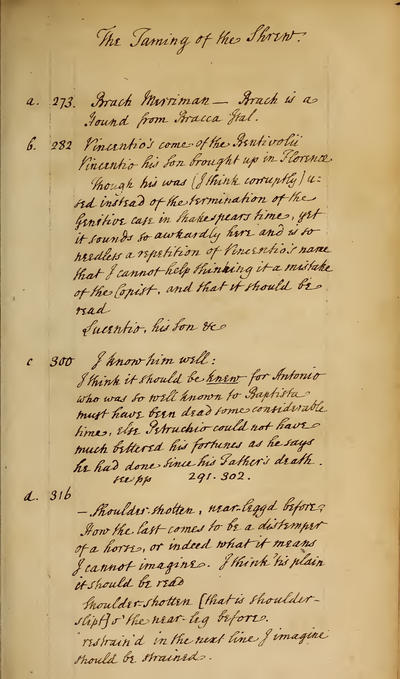 The Taming of the Shrew.
a. 273. Brach Merriman — Brach is a
Hound from Bracca Ital.
b. 282 Vincentio's come of the Bentivolii
Vincentio his Son brought up in Florence
Though his was (I think corruptly) u-
sed instead of the termination of the
Genitive case in Shakespears time, yet
it sounds so awkardly here and is so
needless a repetition of Vincentio's name
that I cannot help thinking it a mistake
of the Copist, and that it should be
read
Lucentio, his Son &c
c 300 I know him well:
I think it should be knew for Antonio
who was so well known to Baptista
must have been dead some considerable
time, else Petruchio could not have
much bettered his fortunes as he says
he had done since his Father's death.
see pp 291. 302.
d. 316
— Shoulder shotten, near-legg'd before;
How the last comes to be a distemper
of a horse, or indeed what it means
I cannot imagine. I think 'tis plain
it should be read
Shoulder shotten [that is shoulder-
slipt] o' the near-leg before.
restrain'd in the next line I imagine
should be strained.